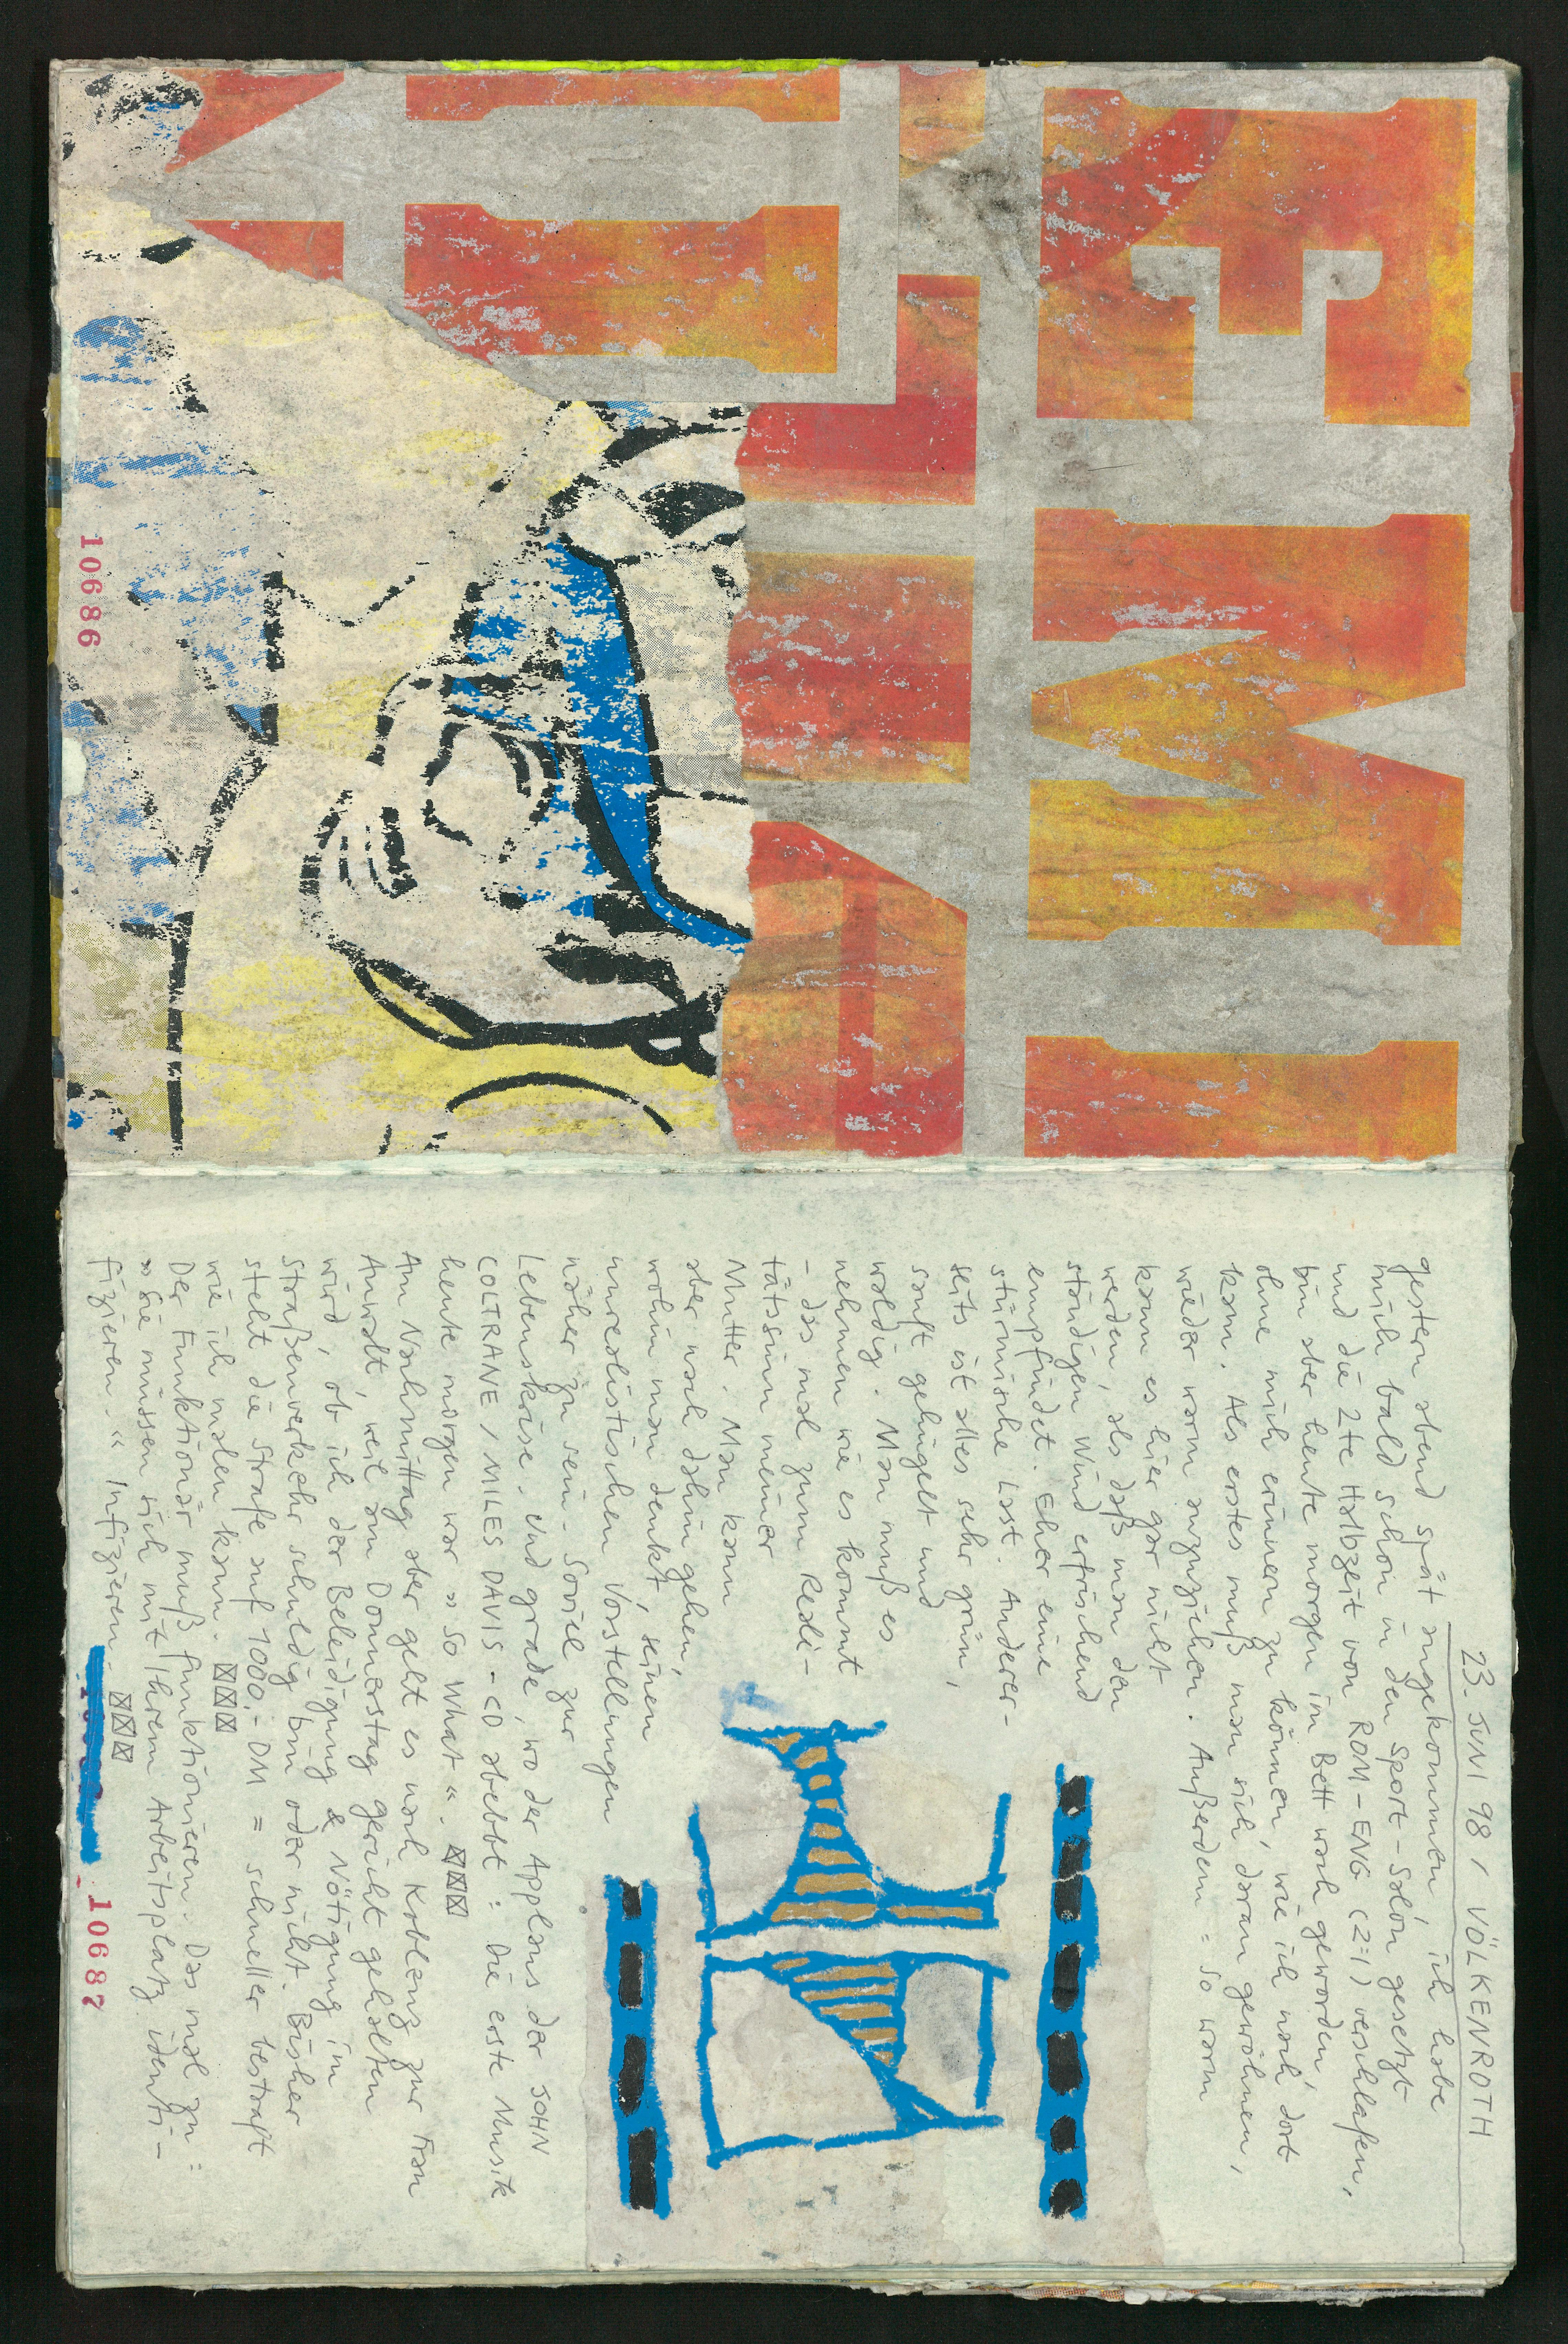 EMI
10686
23. JUNI 98 / VÖLKENROTH
gestern abend spät angekommen, ich habe
mich bald schon in den Sport-Salon gesetzt
und die 2te Halbzeit von ROM-ENG (2:1) verschlafen,
bin aber heute morgen im Bett wach geworden,
ohne mich erinnern zu können, wie ich nach dort
kam. Als erstes muß man sich daran gewöhnen,
wieder warm anzuziehen. Außerdem = so warm
kann es hier gar nicht
werden, als daß man den
ständigen Wind erfrischend
empfindet. Eher eine
stürmische Last. Anderer-
seits ist alles sehr grün,
sanft gehügelt und
waldig. Man muß es
nehmen wie es kommt
- das mal zum Reali-
tätssinn meiner
Mutter. Man kann
aber auch dahin gehen,
wohin man denkt, seinen
unrealistischen Vorstellungen
näher zu sein. Soviel zur
Lebenskrise. Und grade, wo der Applaus der JOHN
COLTRANE / MILES DAVIS - CD abebbt: Die erste Musik
heute morgen war »So What«.
Am Nachmittag aber geht es nach Koblenz zur Frau
Anwalt, weil am Donnerstag Gericht gehalten
wird, ob ich der Beleidigung & Nötigung in
Straßenverkehr schuldig bin oder nicht. Bisher
steht die Strafe auf 1000,- DM = schneller bestraft
wie ich malen kann.
Der Funktionär muß funktionieren. Das mal zu:
»Sie müssen sich mit Ihrem Arbeitsplatz identi-
fizieren.« Infizieren.
10687